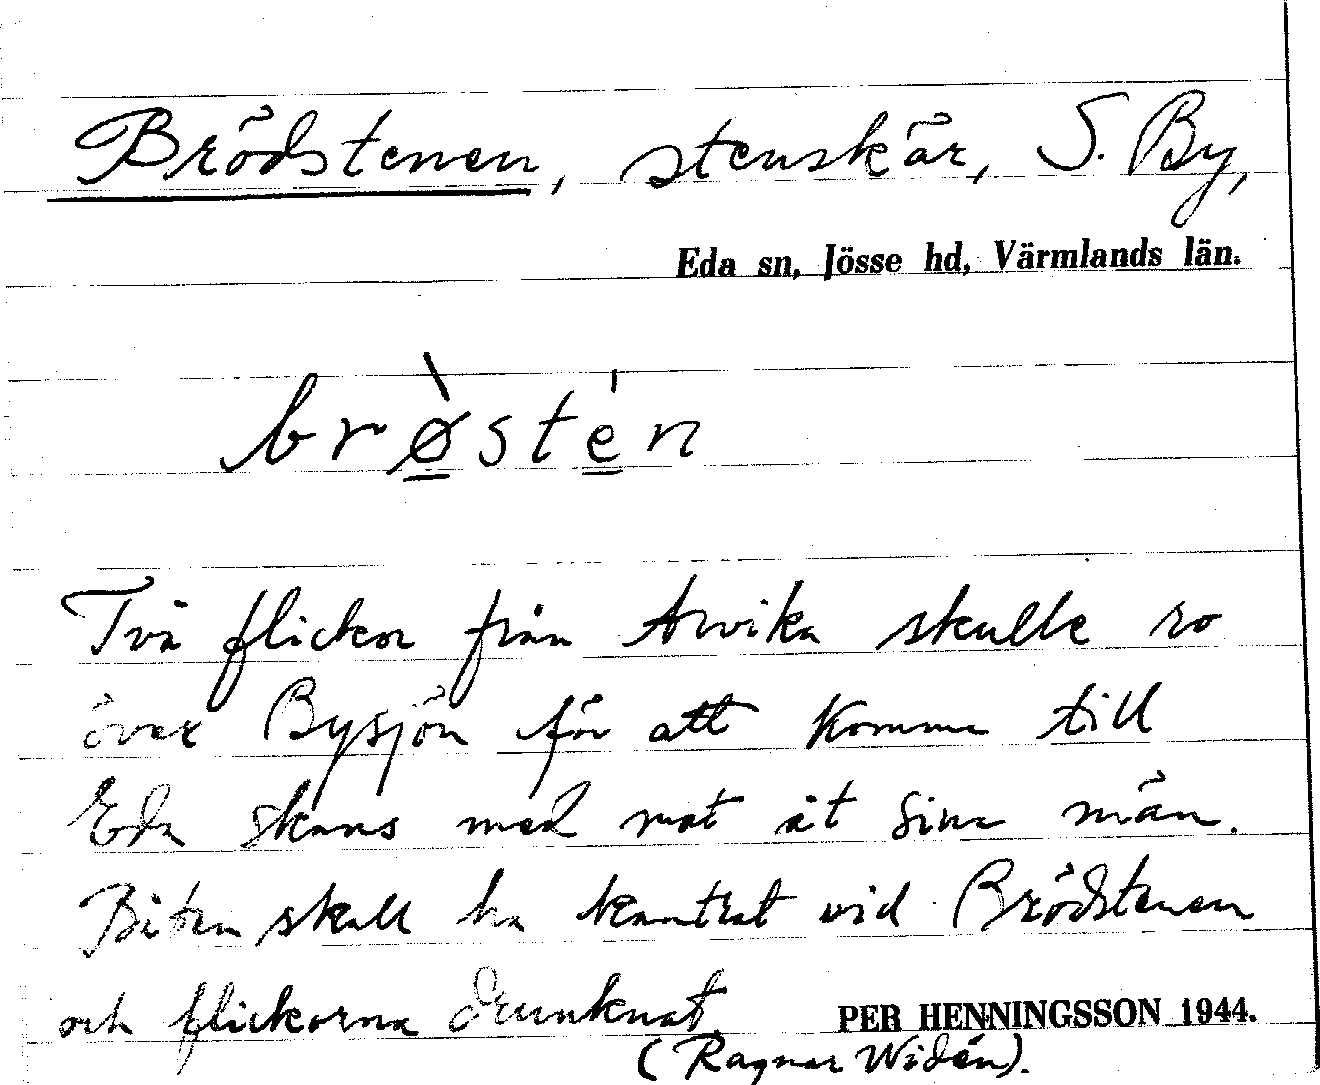 Brödstenen, stenskär, S. By,
Eda sn, Jösse hd, Värmlands län.
brø̀sté̠n
Två flickor från Arvika skulle ro
över Bysjön för att komma till
Eda skans med mat åt sina män.
Båten skall ha kantrat vid Brödstenen
och flickorna drunknat.
PER HENNINGSSON 1944.
(Ragnar Widén).